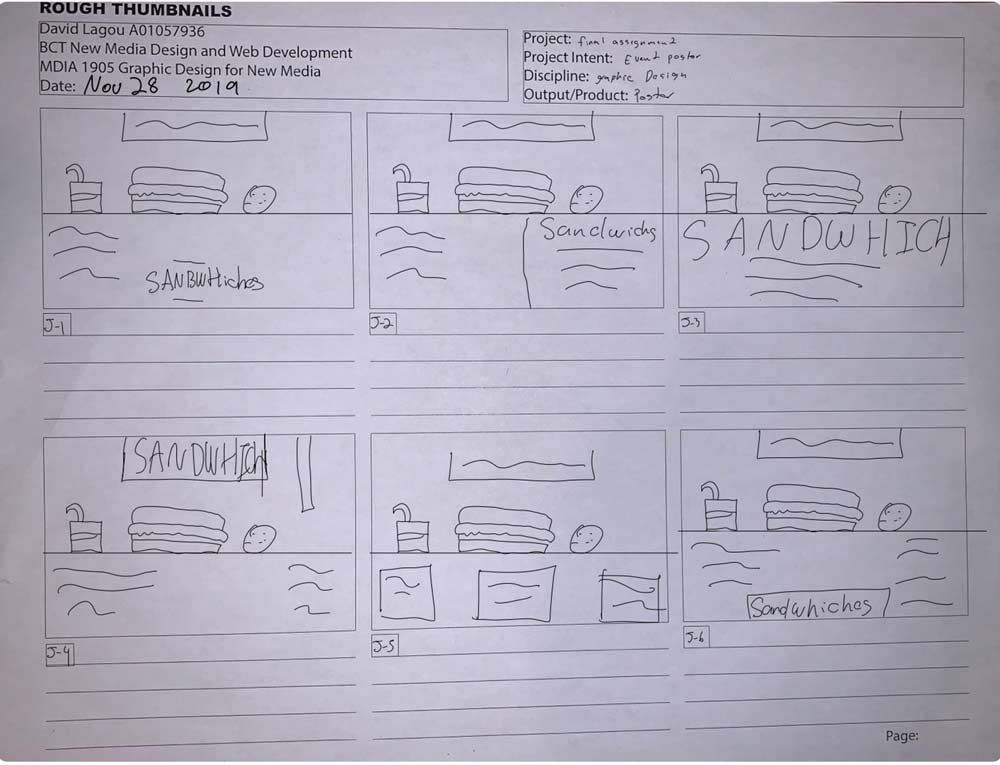 ROUGH THUMBNAILS
David Lagou A01057936
BCT New Media Design and Web Development
MDIA 1905 Graphic Design for New Media
Date: Nov 28 2019
Project: final assignment
Project Intent: Event poster
Discipline: graphic Design
Output/Product: Poster
SANBWHiches
J-1
Sandwichs
J-2
SANDWHICH
J-3
SANDWHICH
J-4
J-5
Sandwhiches
J-6
Page: